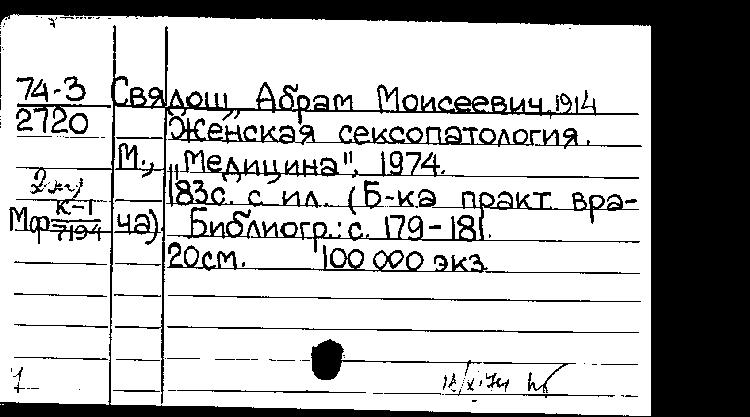 74-3 Свядощ, Абрам Моисеевич, 1914
2720 Женская сексопатология.
М., „Медицина", 1974.
183с. с ил. (Б-ка практ. вра-
Мф К-1/7194 ча). Библиогр.: с. 179-181.
20см. 100 000 экз.